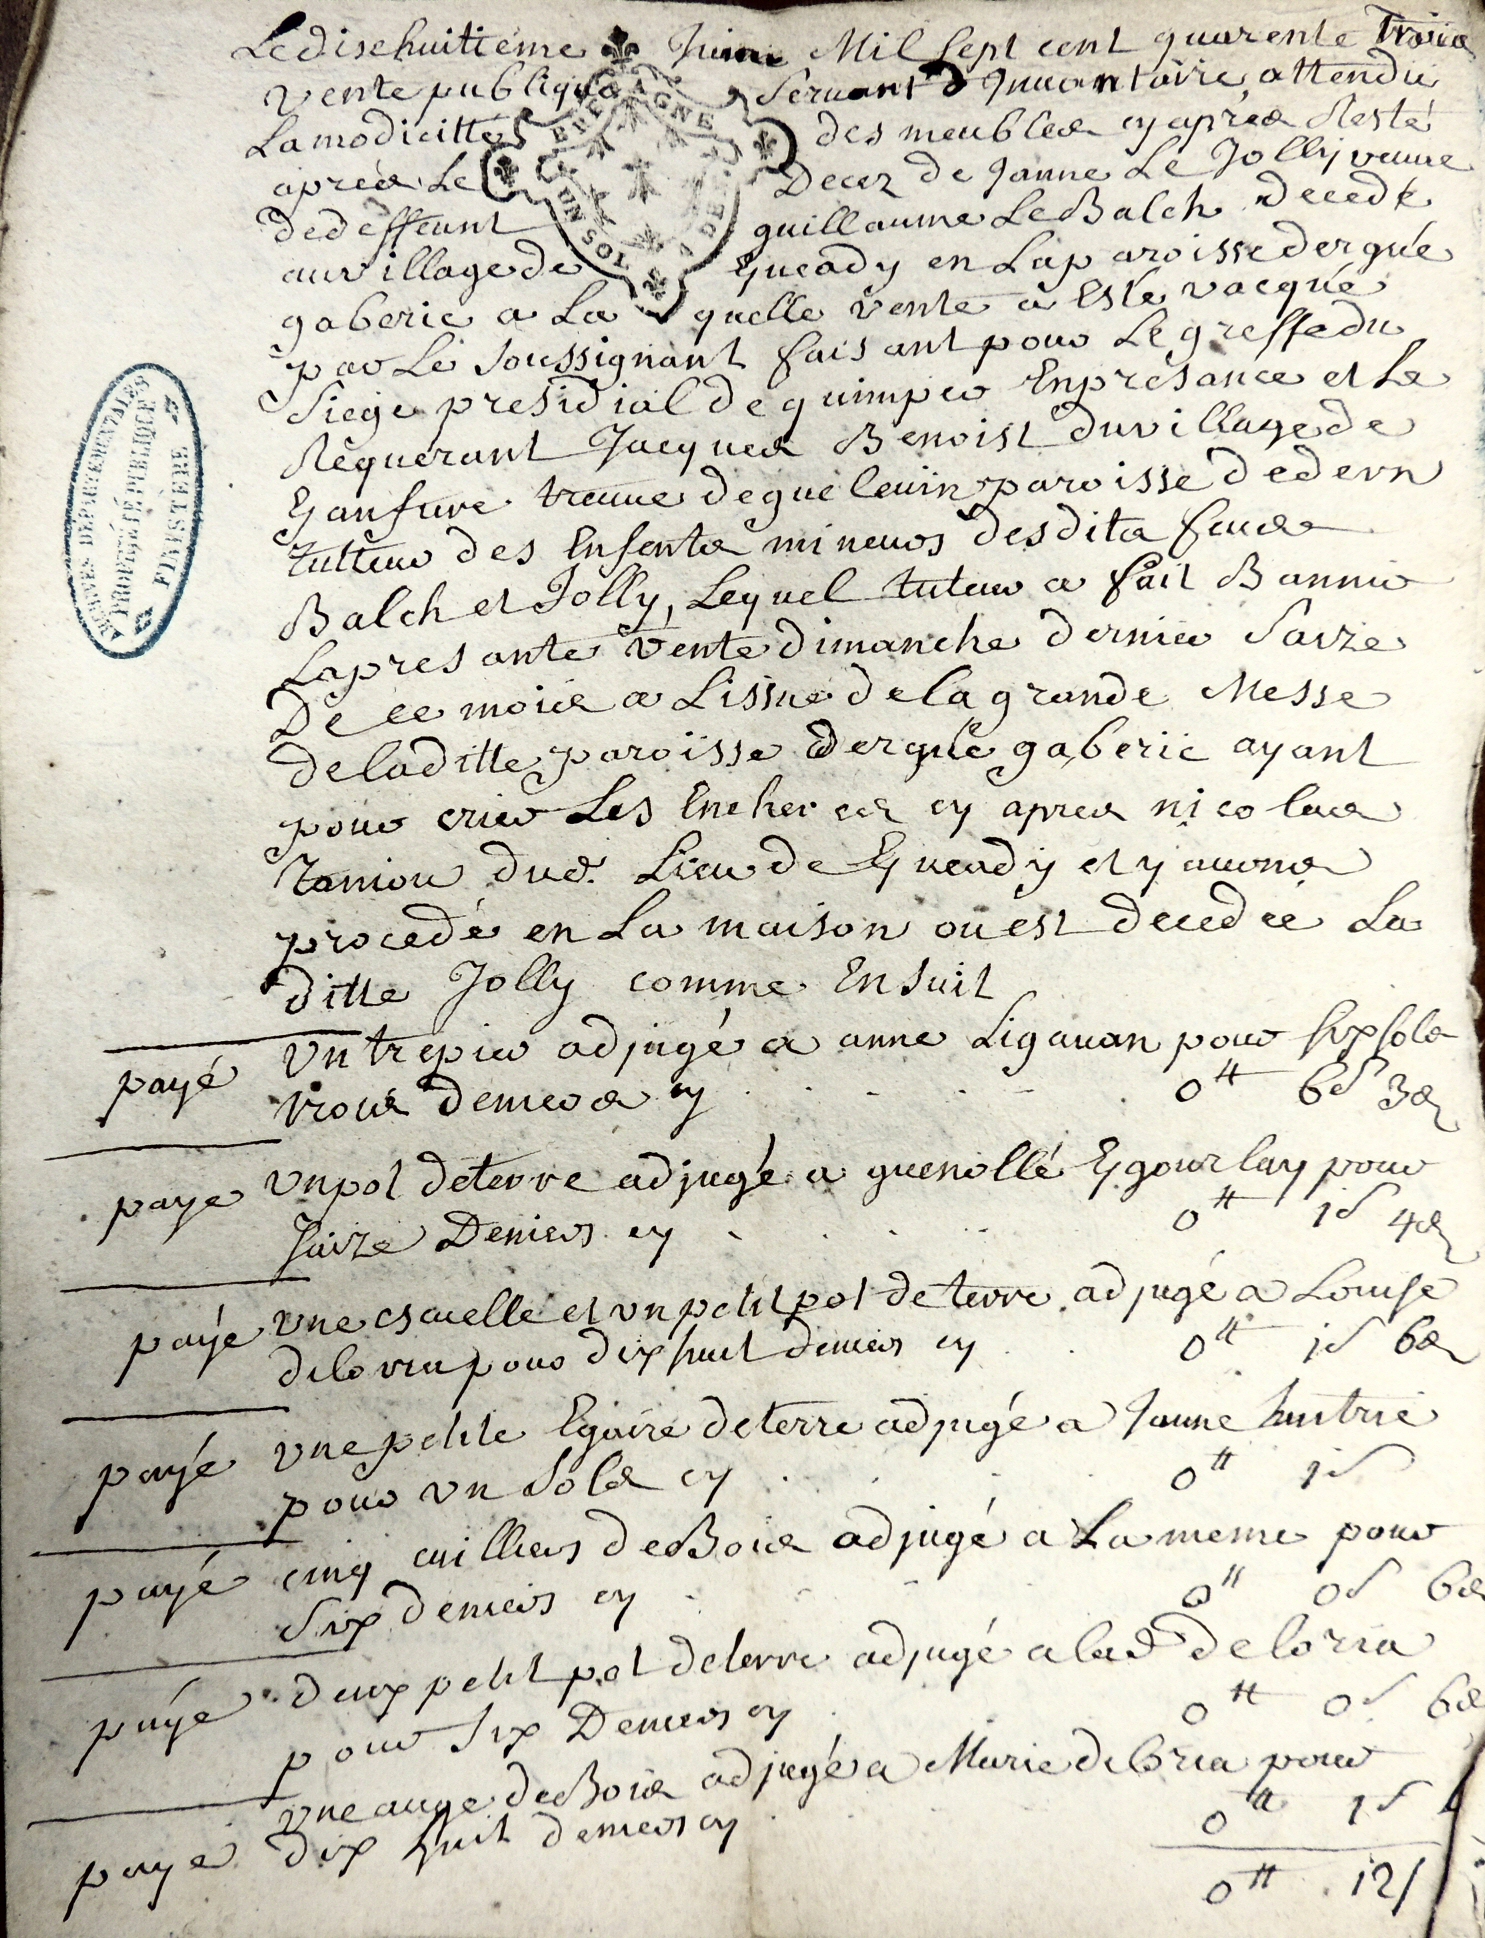 Le disehuitieme Juin Mil sept cent quarente Trois
vente publique servant d Jnuantaire attendu
La modicitté des meubles cy aprés Resté
aprés Le Decez de Janne Le Jolly veuve
de deffeunt guillaume Le Balch decedé
au village de Kueady en La paroisse dergué
gaberic a La quelle vente a Esté vacqué
par Le soussignant faisant pour Le greffe du
siege presidial de quimper En présance et Le
Réquerant Jacques Benoist du village de
Kanfure treuve de quelevin paroisse dedern
tutteur des Enfents mineurs desdits feus
Balch et Jolly, Lequel tuteur a fait Bannir
La presante vente dimanche dernier saize
de ce mois a Lissue de la grande Messe
de laditte paroisse dergué gaberic ayant
pour crier Les Encheres cy apres nicolas
taniou dud. Lieu de Kueady et y avons
procedé en La maison ou est decedée La
ditte Jolly comme Ensuit
payé un trepier adjugé a anne Ligavan pour six sols
trois deniers cy 0tt 6s 3d
paye un pot de terre adjugé a guenollé Kgourlay pour
saize Deniers cy 0tt 1s 4d
payé une escuelle et un petit pot de terre adjugé a Louise
deloria pour dix huit deniers cy 0tt 1s 6d
payé une petite Eguire de terre adjugé a Janne huitrie
pour un sols cy 0tt 1s
payé cinq cuilliers de Bois adjugé a La meme pour
six deniers cy 0tt 0s 6d
payé deux petit pot de terre adjugé a lad. deloria
pour six Deniers cy 0tt 0s 6d
payé une auge de Bois adjugé a Marie deloria pour
dix huit deniers cy 0tt 1s
0tt 12s
BRETAGNE
UN SOL
ARCHIVES DÉPARTEMENTALES
PROPRIÉTÉ PUBLIQUE
FINISTÈRE